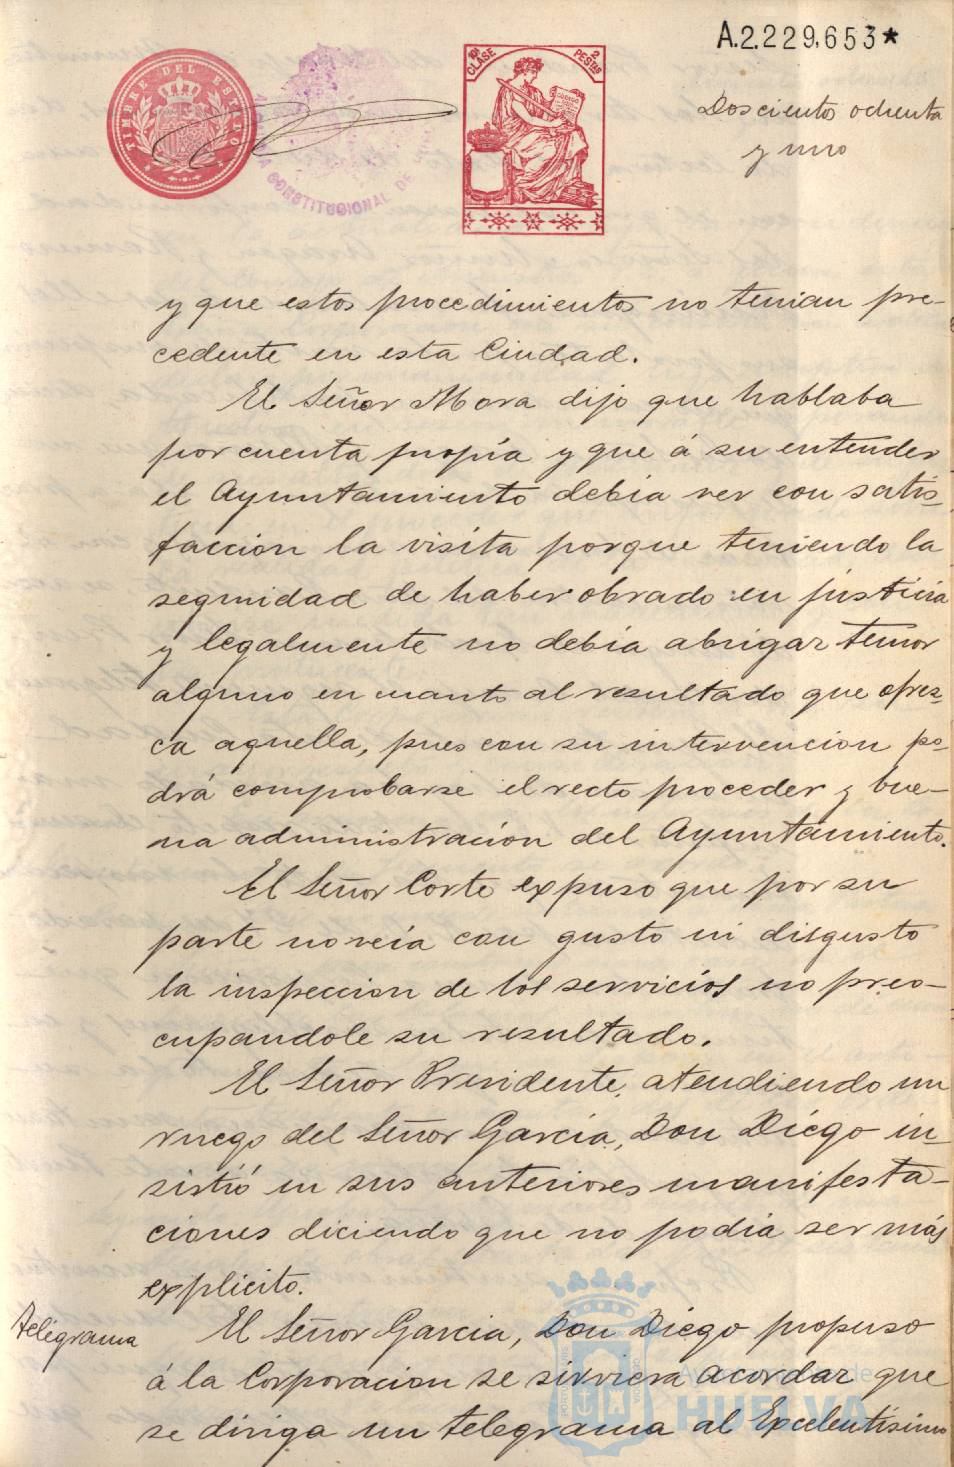 A.2.229.653*
TIMBRE DEL ESTADO
CONSTITUCIONAL DE
10ª CLASE
2 PESTAS
Doscientos ochenta
y uno
y que estos procedimientos no tenian pre-
cedente en esta Ciudad.
El Señor Mora dijo que hablaba
por cuenta propia y que á su entender
el Ayuntamiento debia ver con satis-
faccion la visita porque teniendo la
seguridad de haber obrado en justicia
y legalmente no debia abrigar temor
alguno en cuanto al resultado que ofrez-
ca aquella, pues con su intervencion po-
drá comprobarse el recto proceder y bue-
na administración del Ayuntamiento.
El Señor Corte expuso que por su
parte no veia con gusto ni disgusto
la inspeccion de los servicios no preo-
cupandole su resultado.
El Señor Presidente, atendiendo un
ruego del Señor Garcia, Don Diego in-
sistió en sus anteriores manifesta-
ciones diciendo que no podia ser más
explicito.
Telegrama
El Señor Garcia, Don Diego propuso
á la Corporacion se sirviera acordar que
se dirija un telegrama al Excelentisimo
Ayuntamiento de
HUELVA